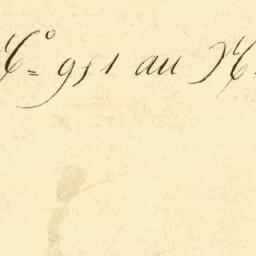 N.º 951 au N.